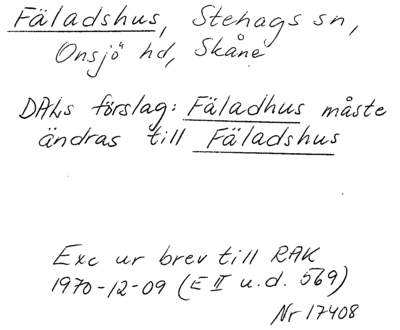 Fäladshus, Stehags sn,
Onsjö hd, Skåne
DALs förslag: Fäladhus måste
ändras till Fäladshus
Exc ur brev till RAK
1970-12-09 (E II u.d. 569)
Nr 17408